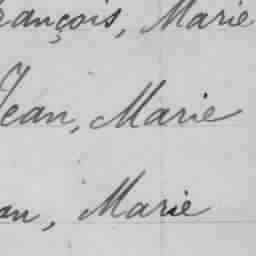 ançois, Marie
Jean, Marie
an, Marie